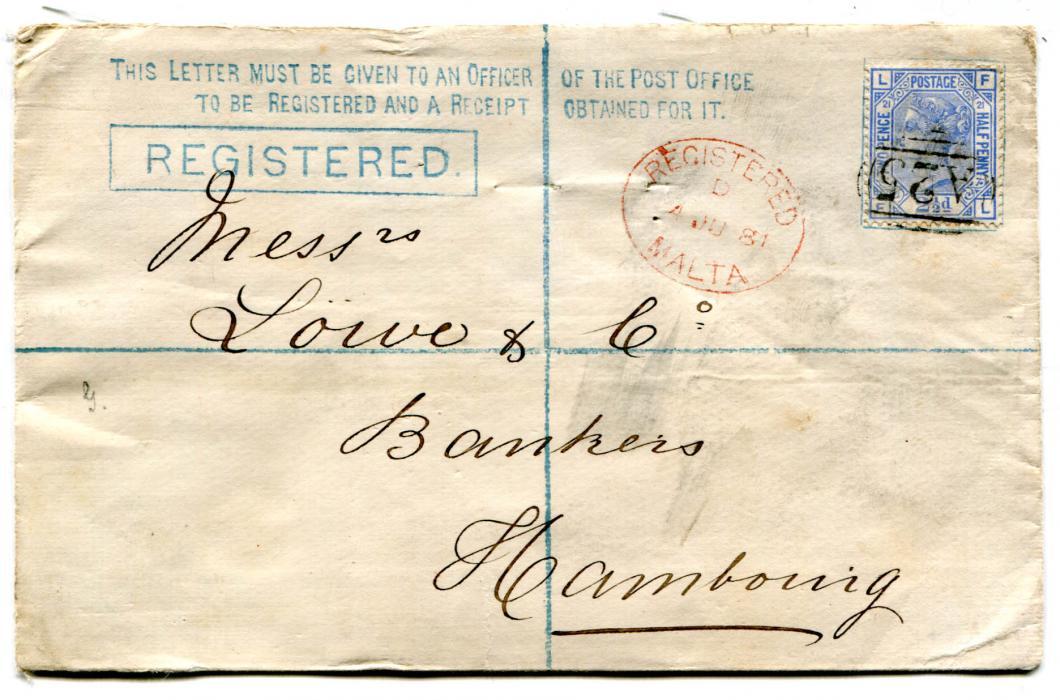 THIS LETTER MUST BE GIVEN TO AN OFFICER OF THE POST OFFICE
TO BE REGISTERED AND A RECEIPT OBTAINED FOR IT.
REGISTERED.
L POSTAGE F
21 21
TWO PENCE HALF PENNY
F 2½d L
A25
REGISTERED
D
4 JU 81
MALTA
Messrs
Löwe & Co
Bankers
Hambourg